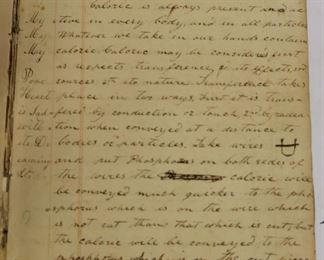 Caloric is always present and ac
My itive in every body, and in all particles
My Whatever we take in our hands contains
My caloric. Caloric may be considered first
as respects transference, 2d its effects, 3rd
sources 4th its nature. Transference takes
Heat place in two ways, First it is trans-
is fered by conduction or touch, 2nd by radia
tion when conveyed at a distance to
its D bodies or particles. Take wires
and put Phosphorus on both sides of
the wires the caloric will
be conveyed much quicker to the pho
sphorus which is on the wire which
is not cut than that which is cut, but
the caloric will be conveyed to the
phosphorus which is on the cut piece